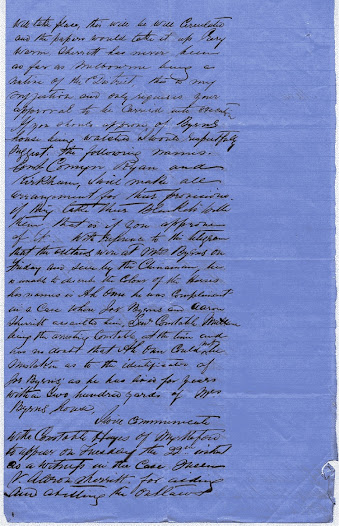 will take place, this will be well circulated
and the papers would take it up very
warm Sherritt has never been
as far as Melbourne being a
native of the District. this is my
and only requires your
approval to be carried into
If you should approve of Byrnes
house being watched I would respectfully
suggest the following names.
Const Ryan and
Kirkham, I will make all
arrangement for their provisions.
if they take their Blankets with
them that is if you approve
of it. With reference to the telegram
that the outlaws were at Mrs Byrnes on
Friday and seen by the Chinaman, he
is unable to describe the Colour of the horses
his name is Ah he was Complainant
in a Case when Joe Byrnes and Aaron
Sherritt assaulted him, Constable Mullane
being the arresting Constable at the time and
has no doubt that Ah Could not be
mistaken as to the identification of
Joe Byrnes as he has lived for years
within two hundred yards of Mrs
Byrnes house,
I have Communicated
with Constable Hayes of Myrtleford
to appear on Tuesday the 22nd inst
as a witness in the Case Queen
V Aaron Sherritt. for aiding
and abetting the Outlaws